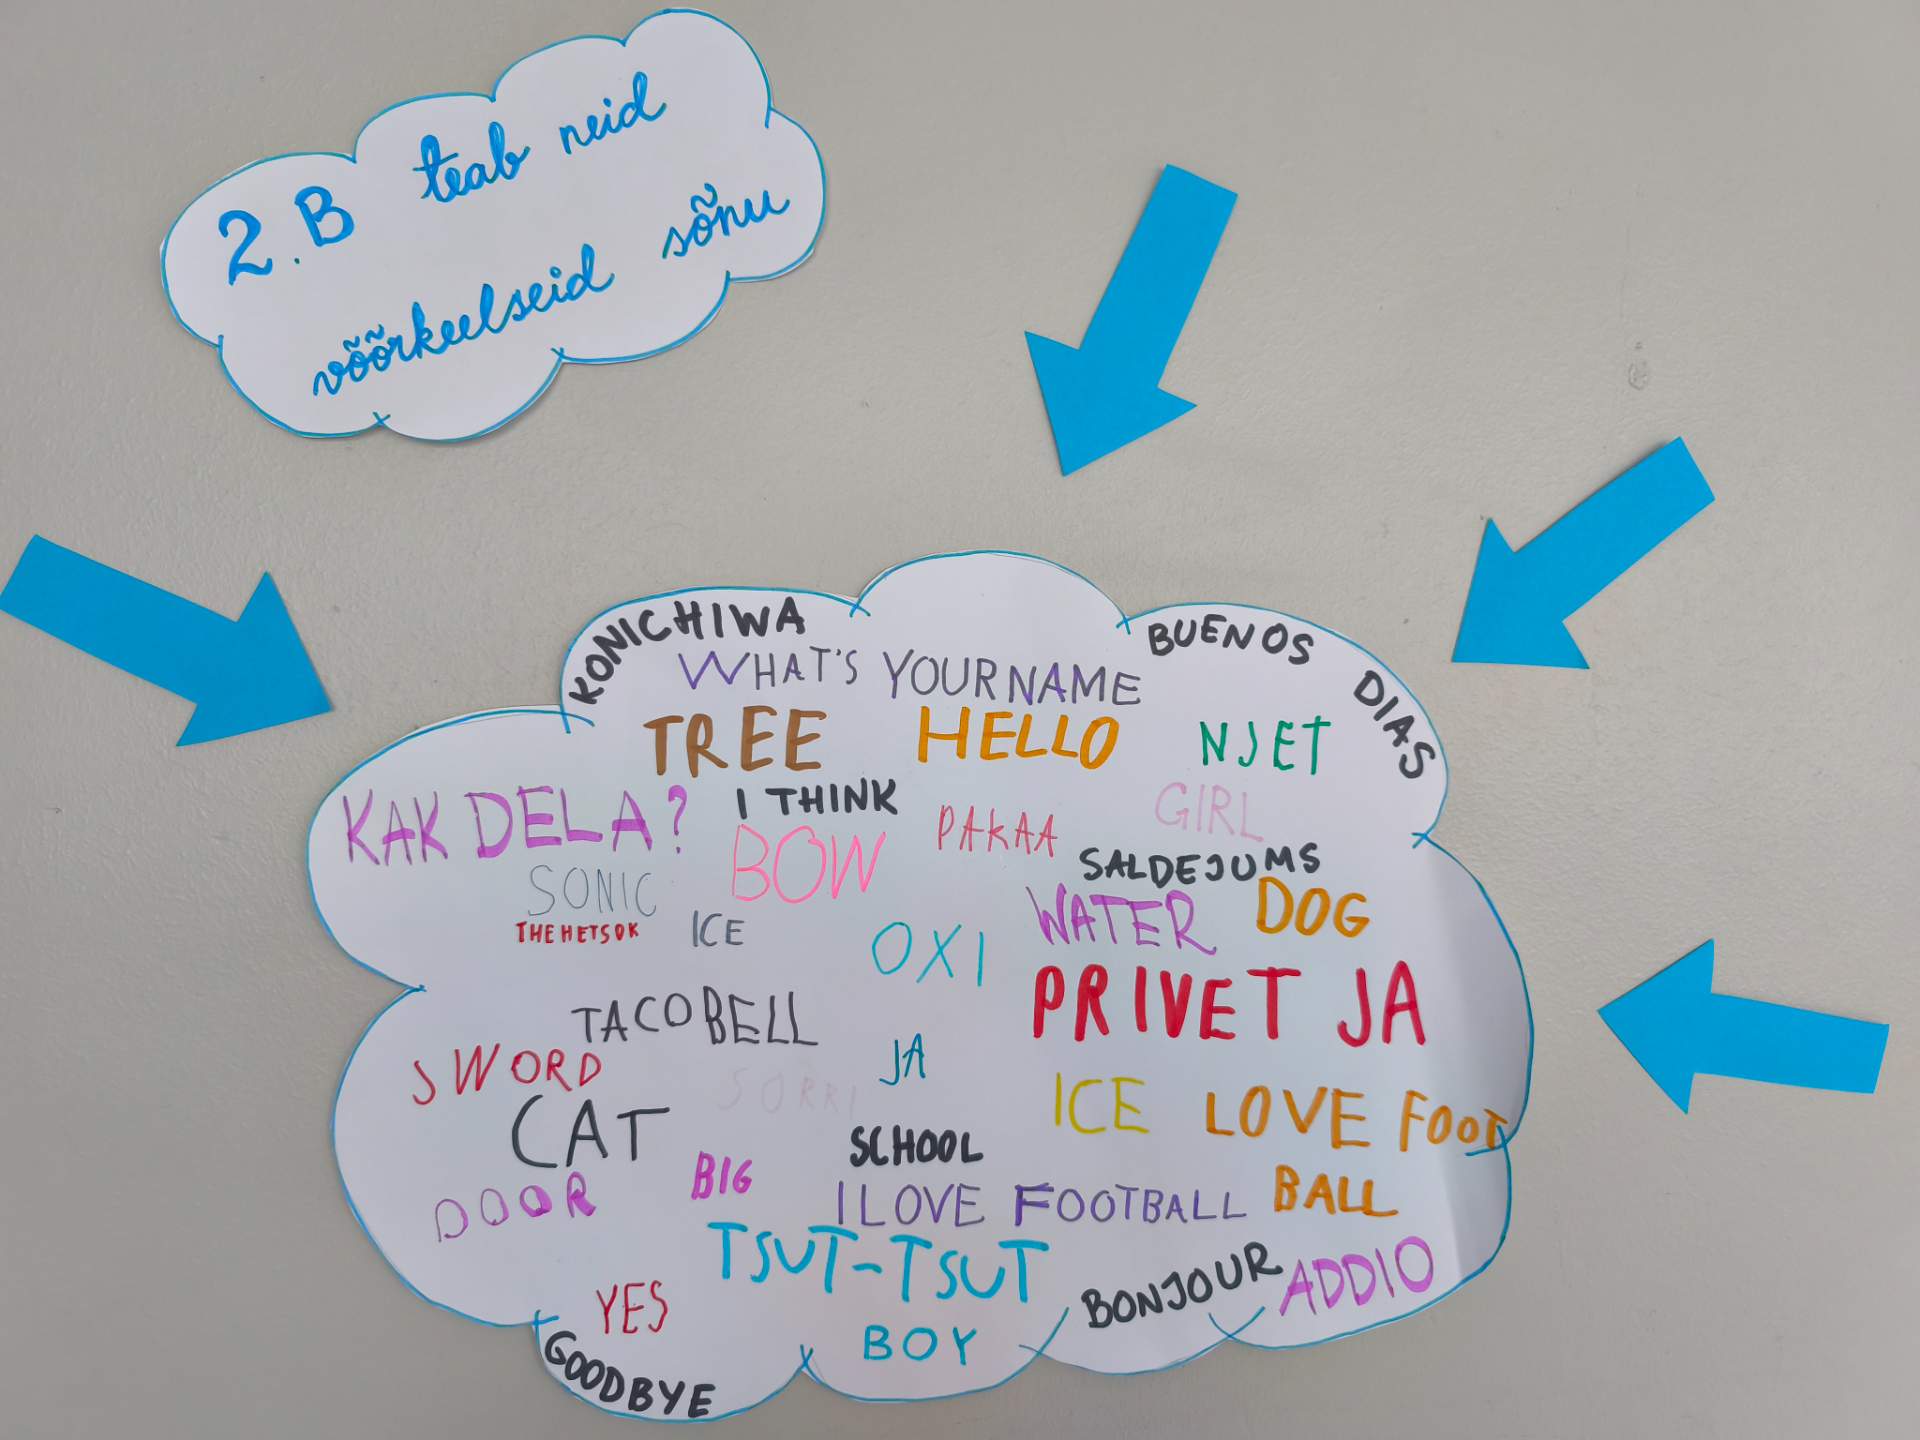 2.B teab neid
võõrkeelseid sõnu
KONICHIWA
BUENOS DIAS
WHAT'S YOUR NAME
TREE
HELLO
NJET
KAK DELA?
I THINK
PAKAA
GIRL
BOW
SALDEJUMS
SONIC
THEHETSOK
ICE
OXI
WATER
DOG
PRIVET JA
TACO BELL
SWORD
JA
SORRI
ICE
LOVE FOOT
BALL
CAT
SCHOOL
BIG
DOOR
I LOVE FOOTBALL
TSUT-TSUT
BONJOUR
ADDIO
YES
BOY
GOODBYE